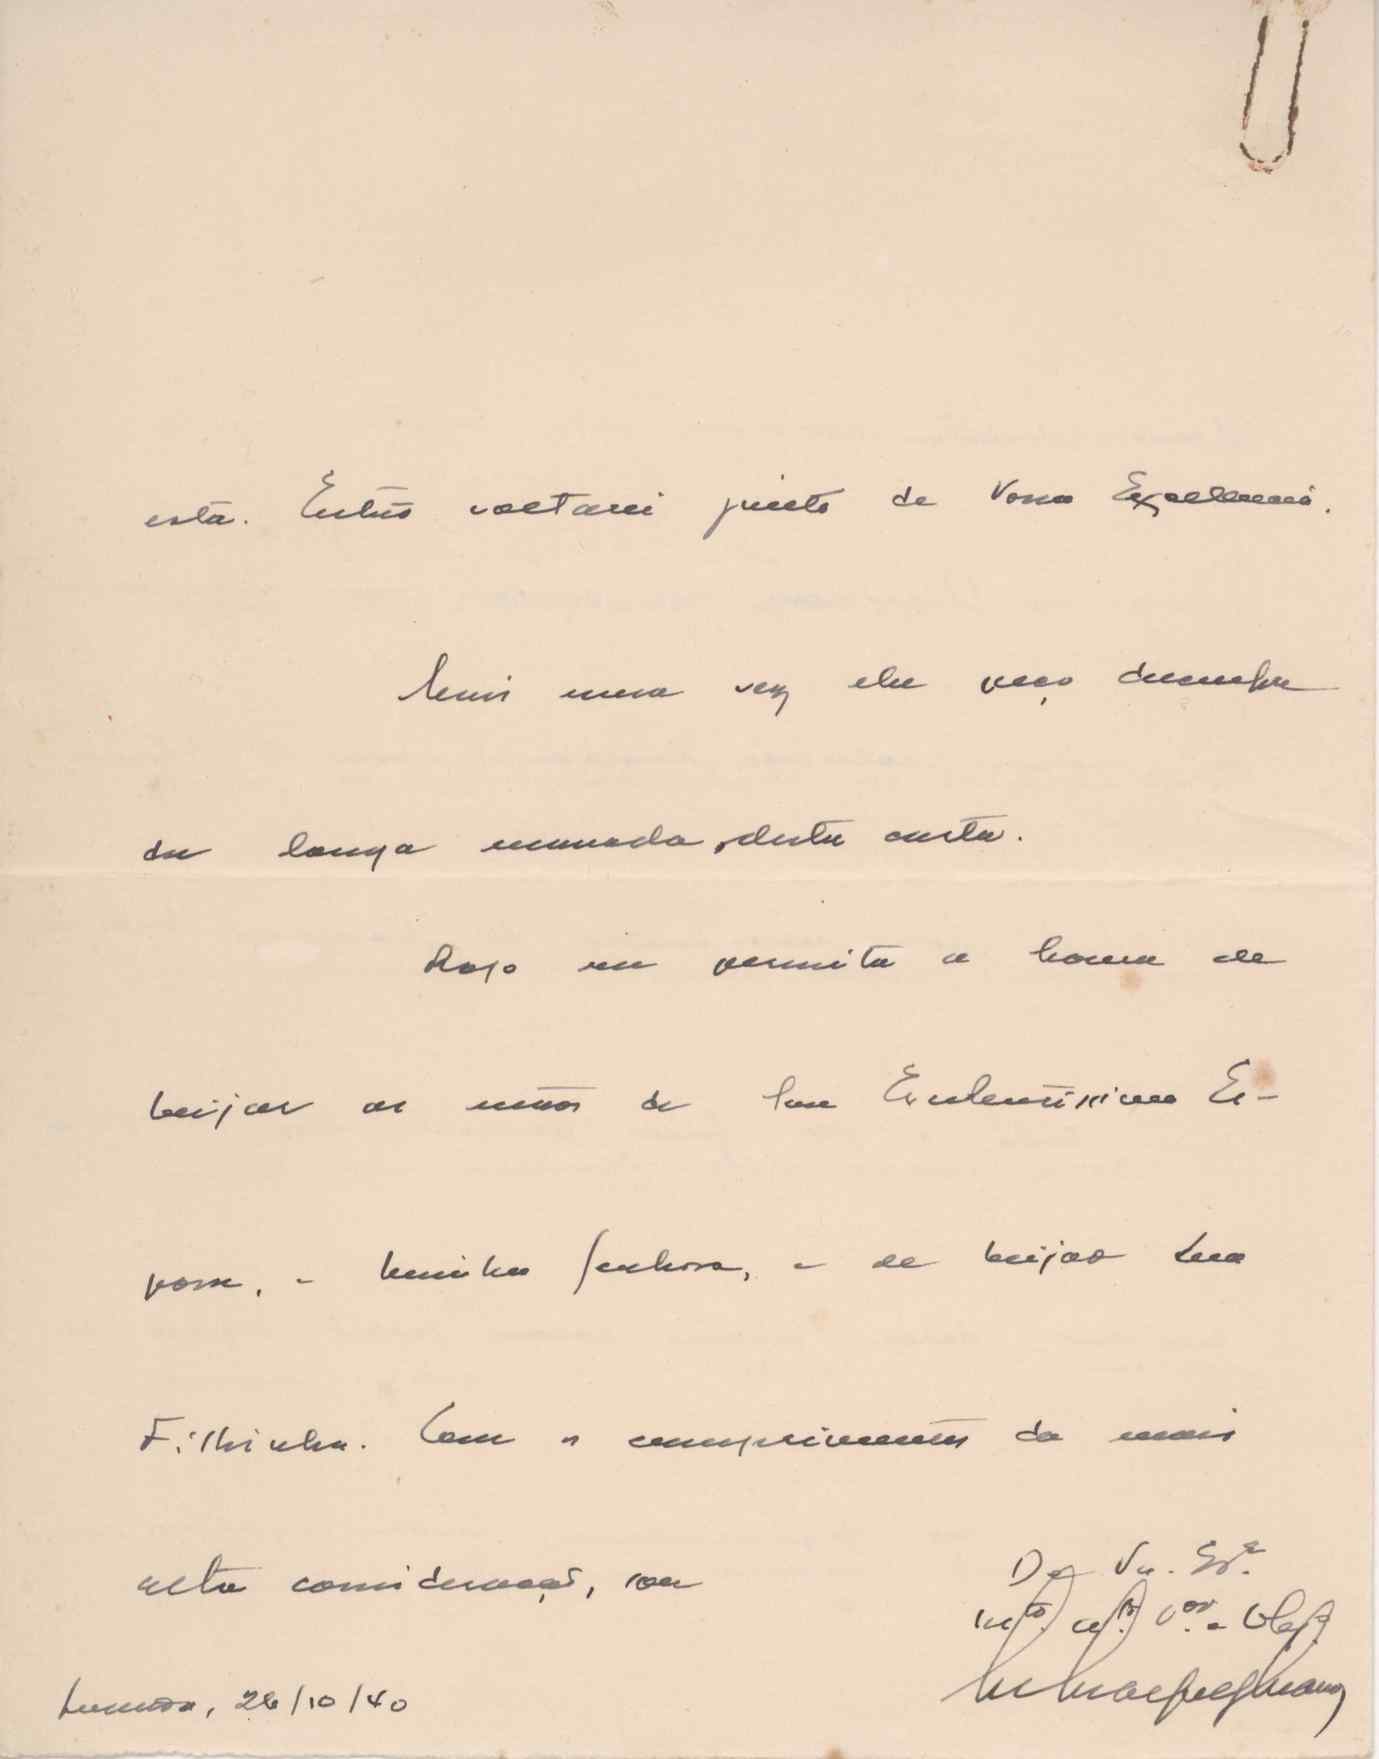 esta. Então voltarei junto de Vossa Excellencia.
Mais uma vez lhe peço desculpa
da longa massada desta carta.
Rogo me permita a honra de
beijar as mãos de Sua Excelentissima Es-
posa, e minha Senhora, e de beijar Sua
Filhinha. Com os cumprimentos da mais
alta consideração, sou
De Va. Exª
mtº. attº. vor. e
26/10/40